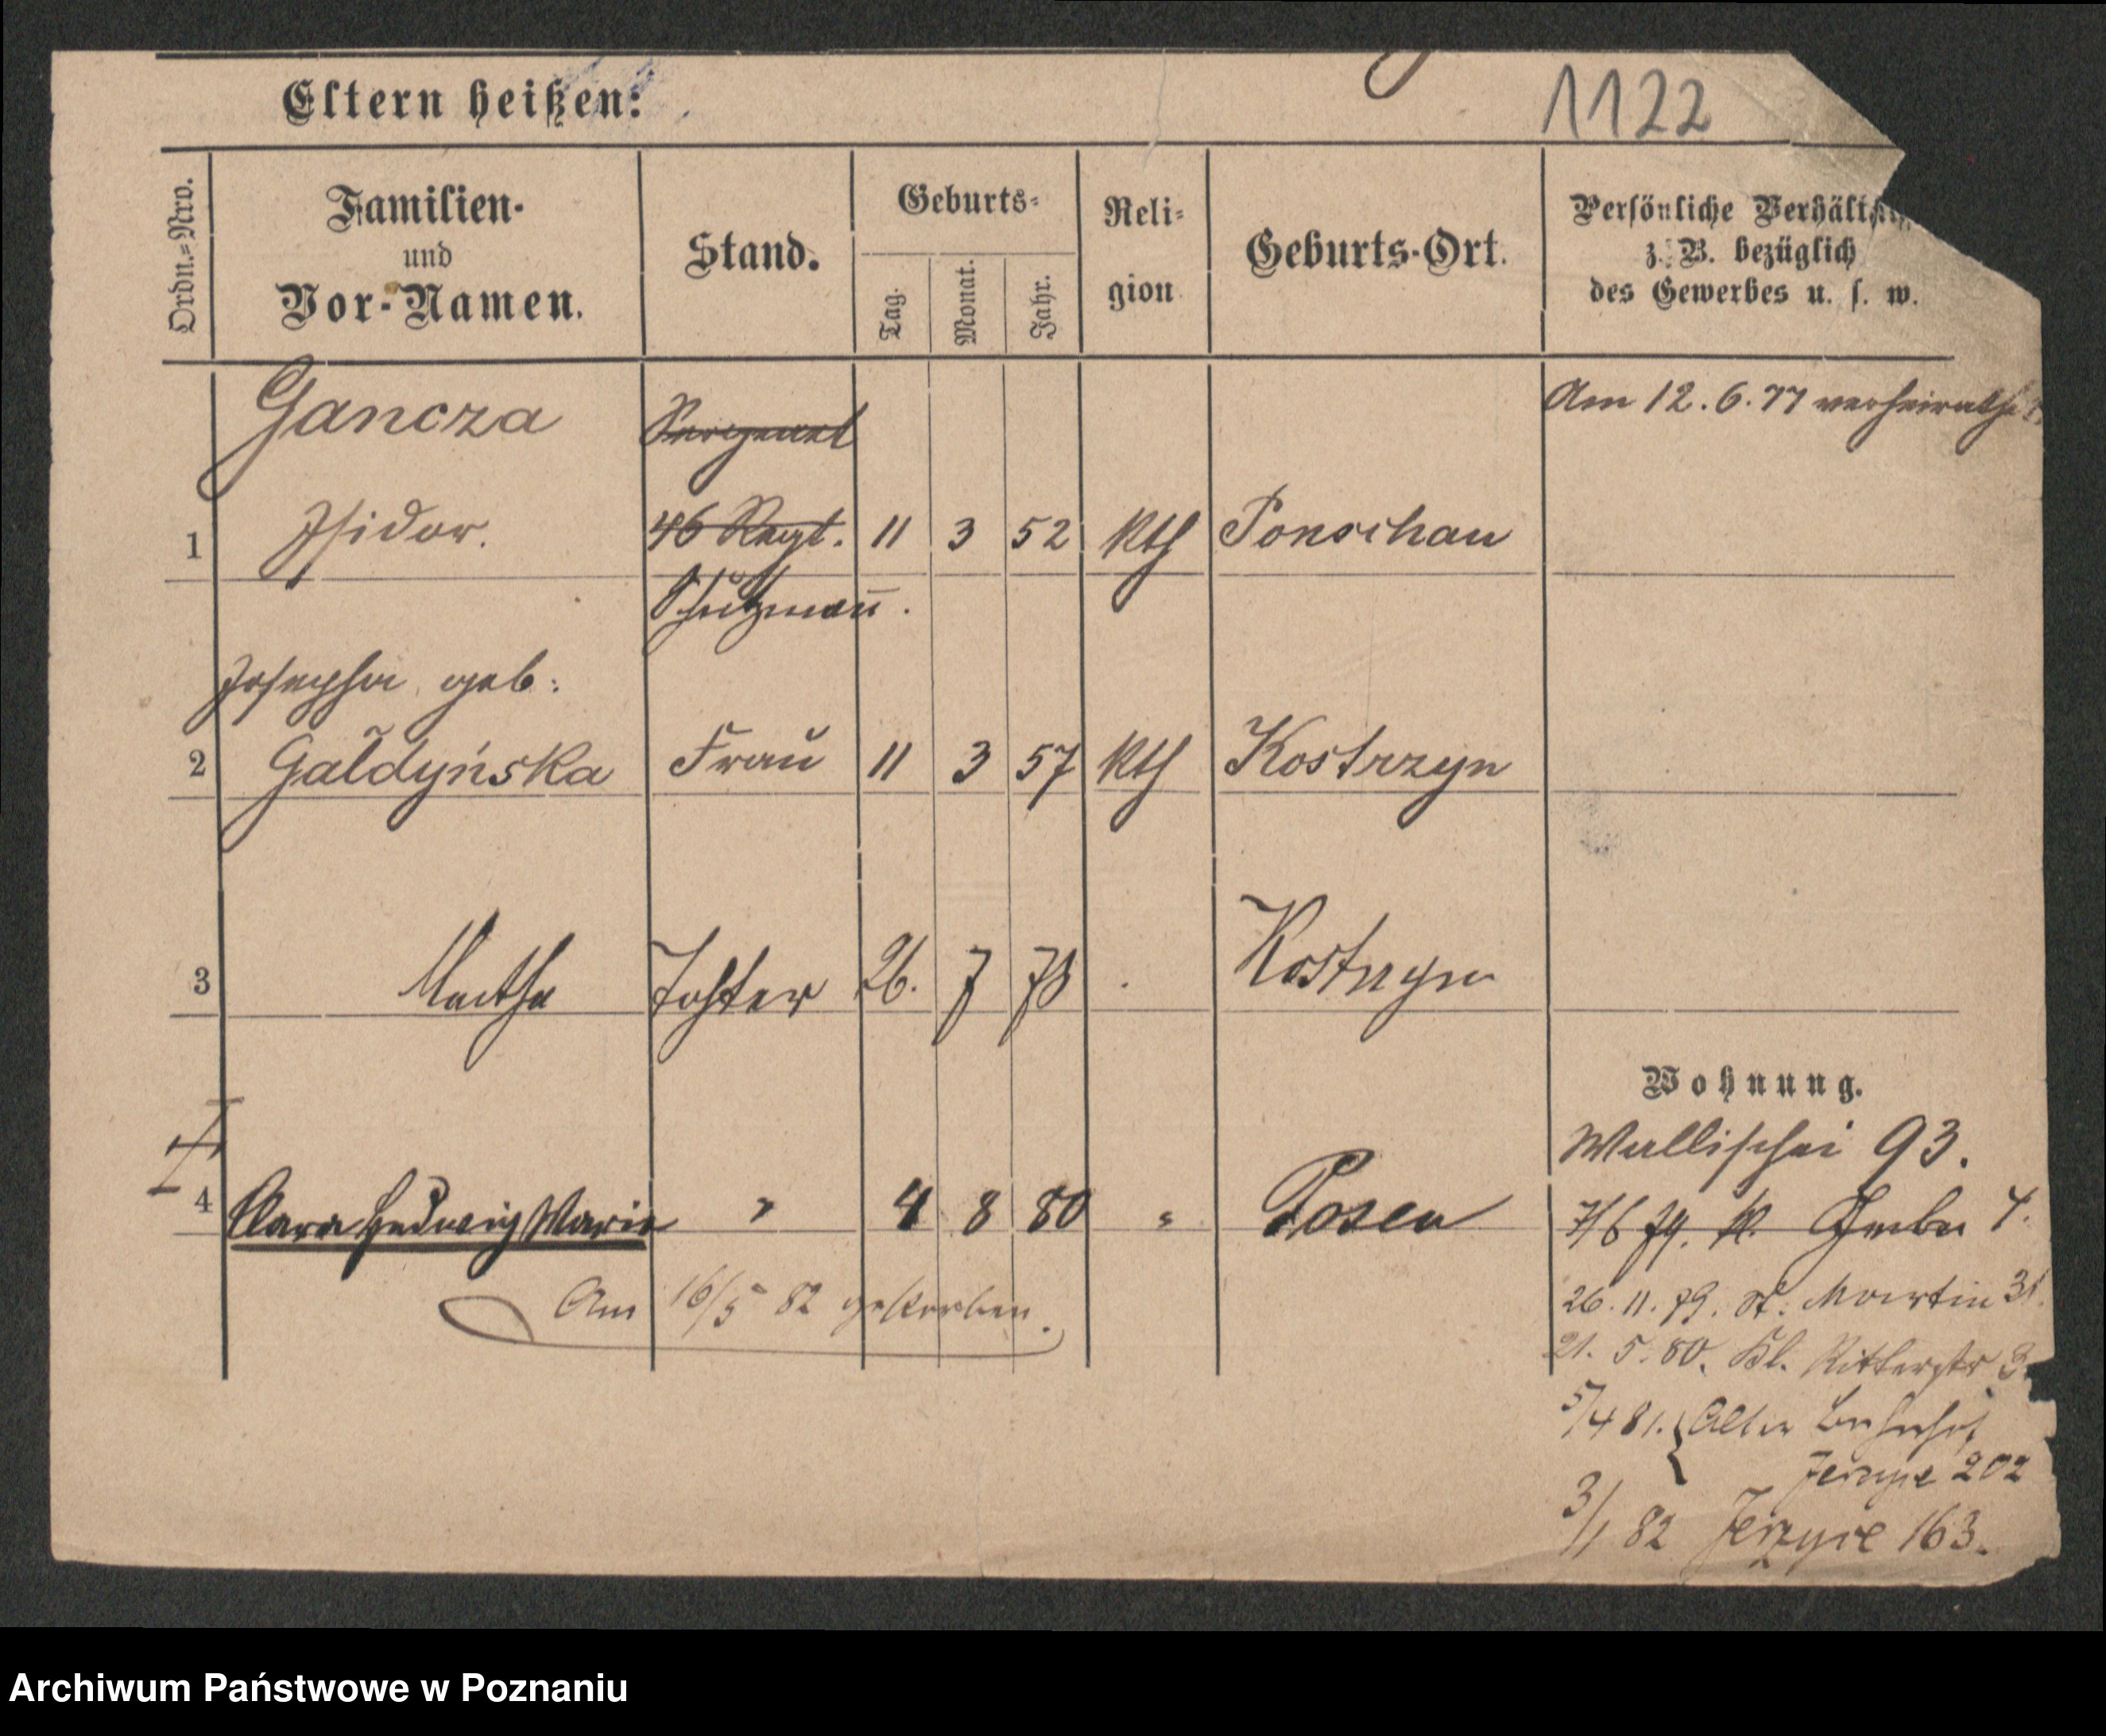 1122
Eltern heißen:
Ordn.=Nro.
Familien-
und
Vor-Namen.
Stand.
Geburts-
Tag.
Monat.
Jahr.
Reli-
gion
Geburts-Ort.
Persönliche
z. B. bezüglich
des Gewerbes u. s. w.
Gancza
Sergeant
Am 12. 6. 77 verheirathet
1 Isidor. 46 Regt. 11 3 52 kth Ponschau
Schutzmañ.
Josepha geb:
2 Gałdyńska Frau 11 3 57 kth Kostrzyn
3 Martha Tochter 26. 7 78 Kostrzyn
Wohnung.
Wallischei 93.
4 Clara Hedwig Maria " 4 8 80 " Posen
7/6 79. kl. Gerber 4.
Am 16/5 82 gestorben.
26. 11. 79. St. Martin 31
21. 5. 80. Kl. Ritterstr
5/4 81. Alter Bahnhof
Jerzyce 202
3/1 82 Jerzyce 163.
Archiwum Państwowe w Poznaniu